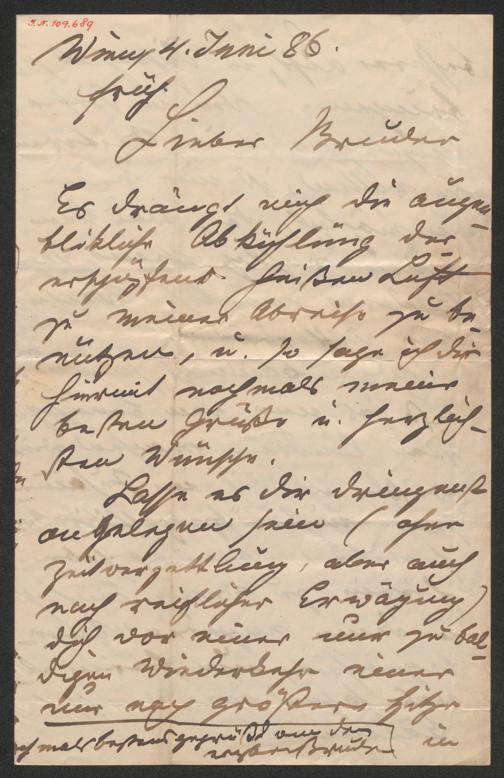 I.N. 109.689
Wien, 4. Juni 86.
früh.
Lieber Bruder
Es drängt mich die augen-
blikliche Abkühlung der
erschöpfend heißen Luft
zu meiner Abreise zu be-
nützen, u. so sage ich dir
hiermit nochmals meine
besten Grüße u. herzlich-
sten Wünsche.
Lasse es dir dringenst
angelegen sein (ohne
Zeitverzettlung, aber auch
nach reiflicher Erwägung)
dich vor einer nur zu bal-
digen Wiederkehr einer
nur noch größern Hitze
in
nochmals bestens gegrüßt von dem
Bruder